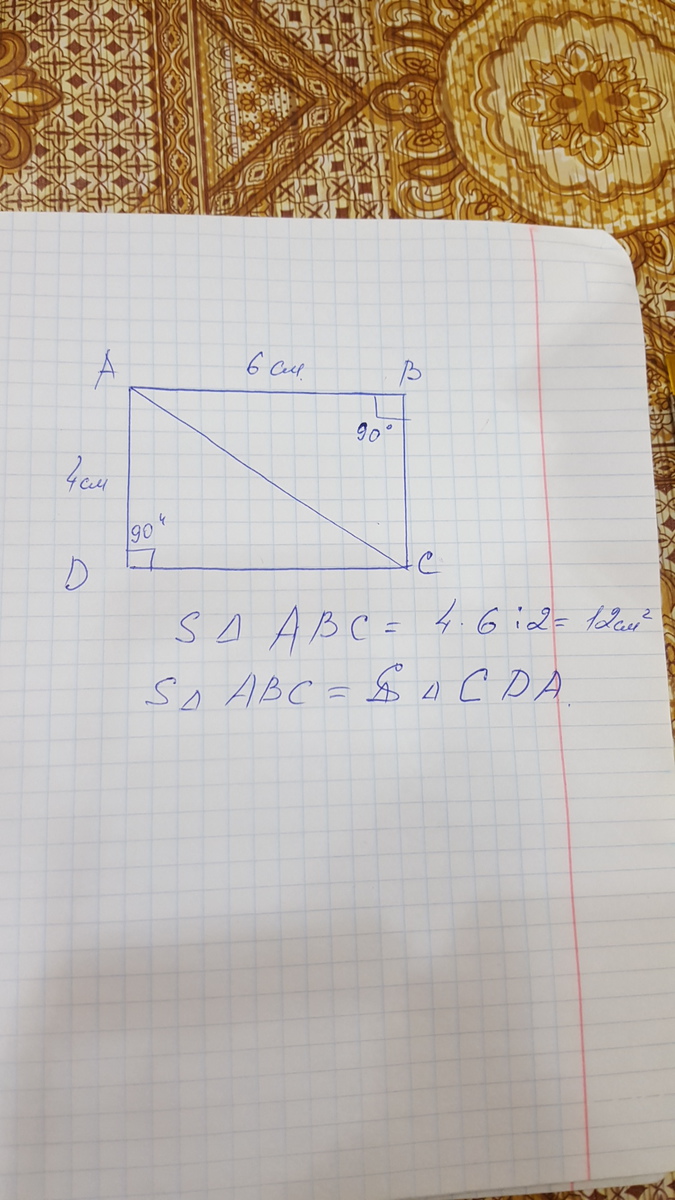 A 6 см. B
90°
4 см
90°
D C
S △ ABC = 4 · 6 : 2 = 12 см²
S △ ABC = S △ CDA.